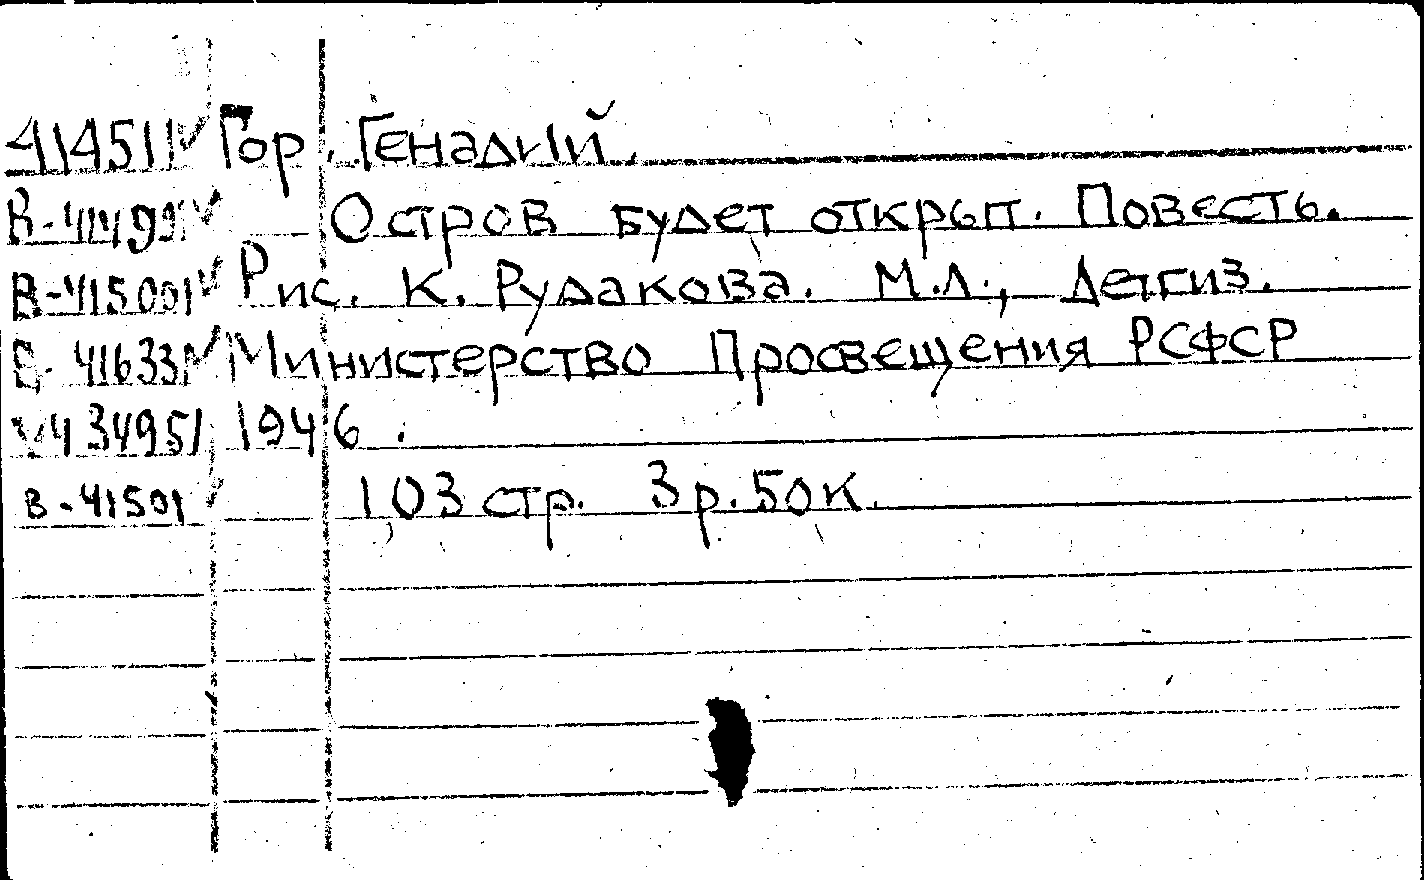 414511 ✓ Гор. Генадий.
В-41499 ✓ Остров будет открыт. Повесть.
В-415001 ✓ Рис. К. Рудакова. М.Л., Детгиз.
41633 ✓ Министерство Просвещения РСФСР
434951 1946.
В-41501 103 стр. 3 р. 50 к.